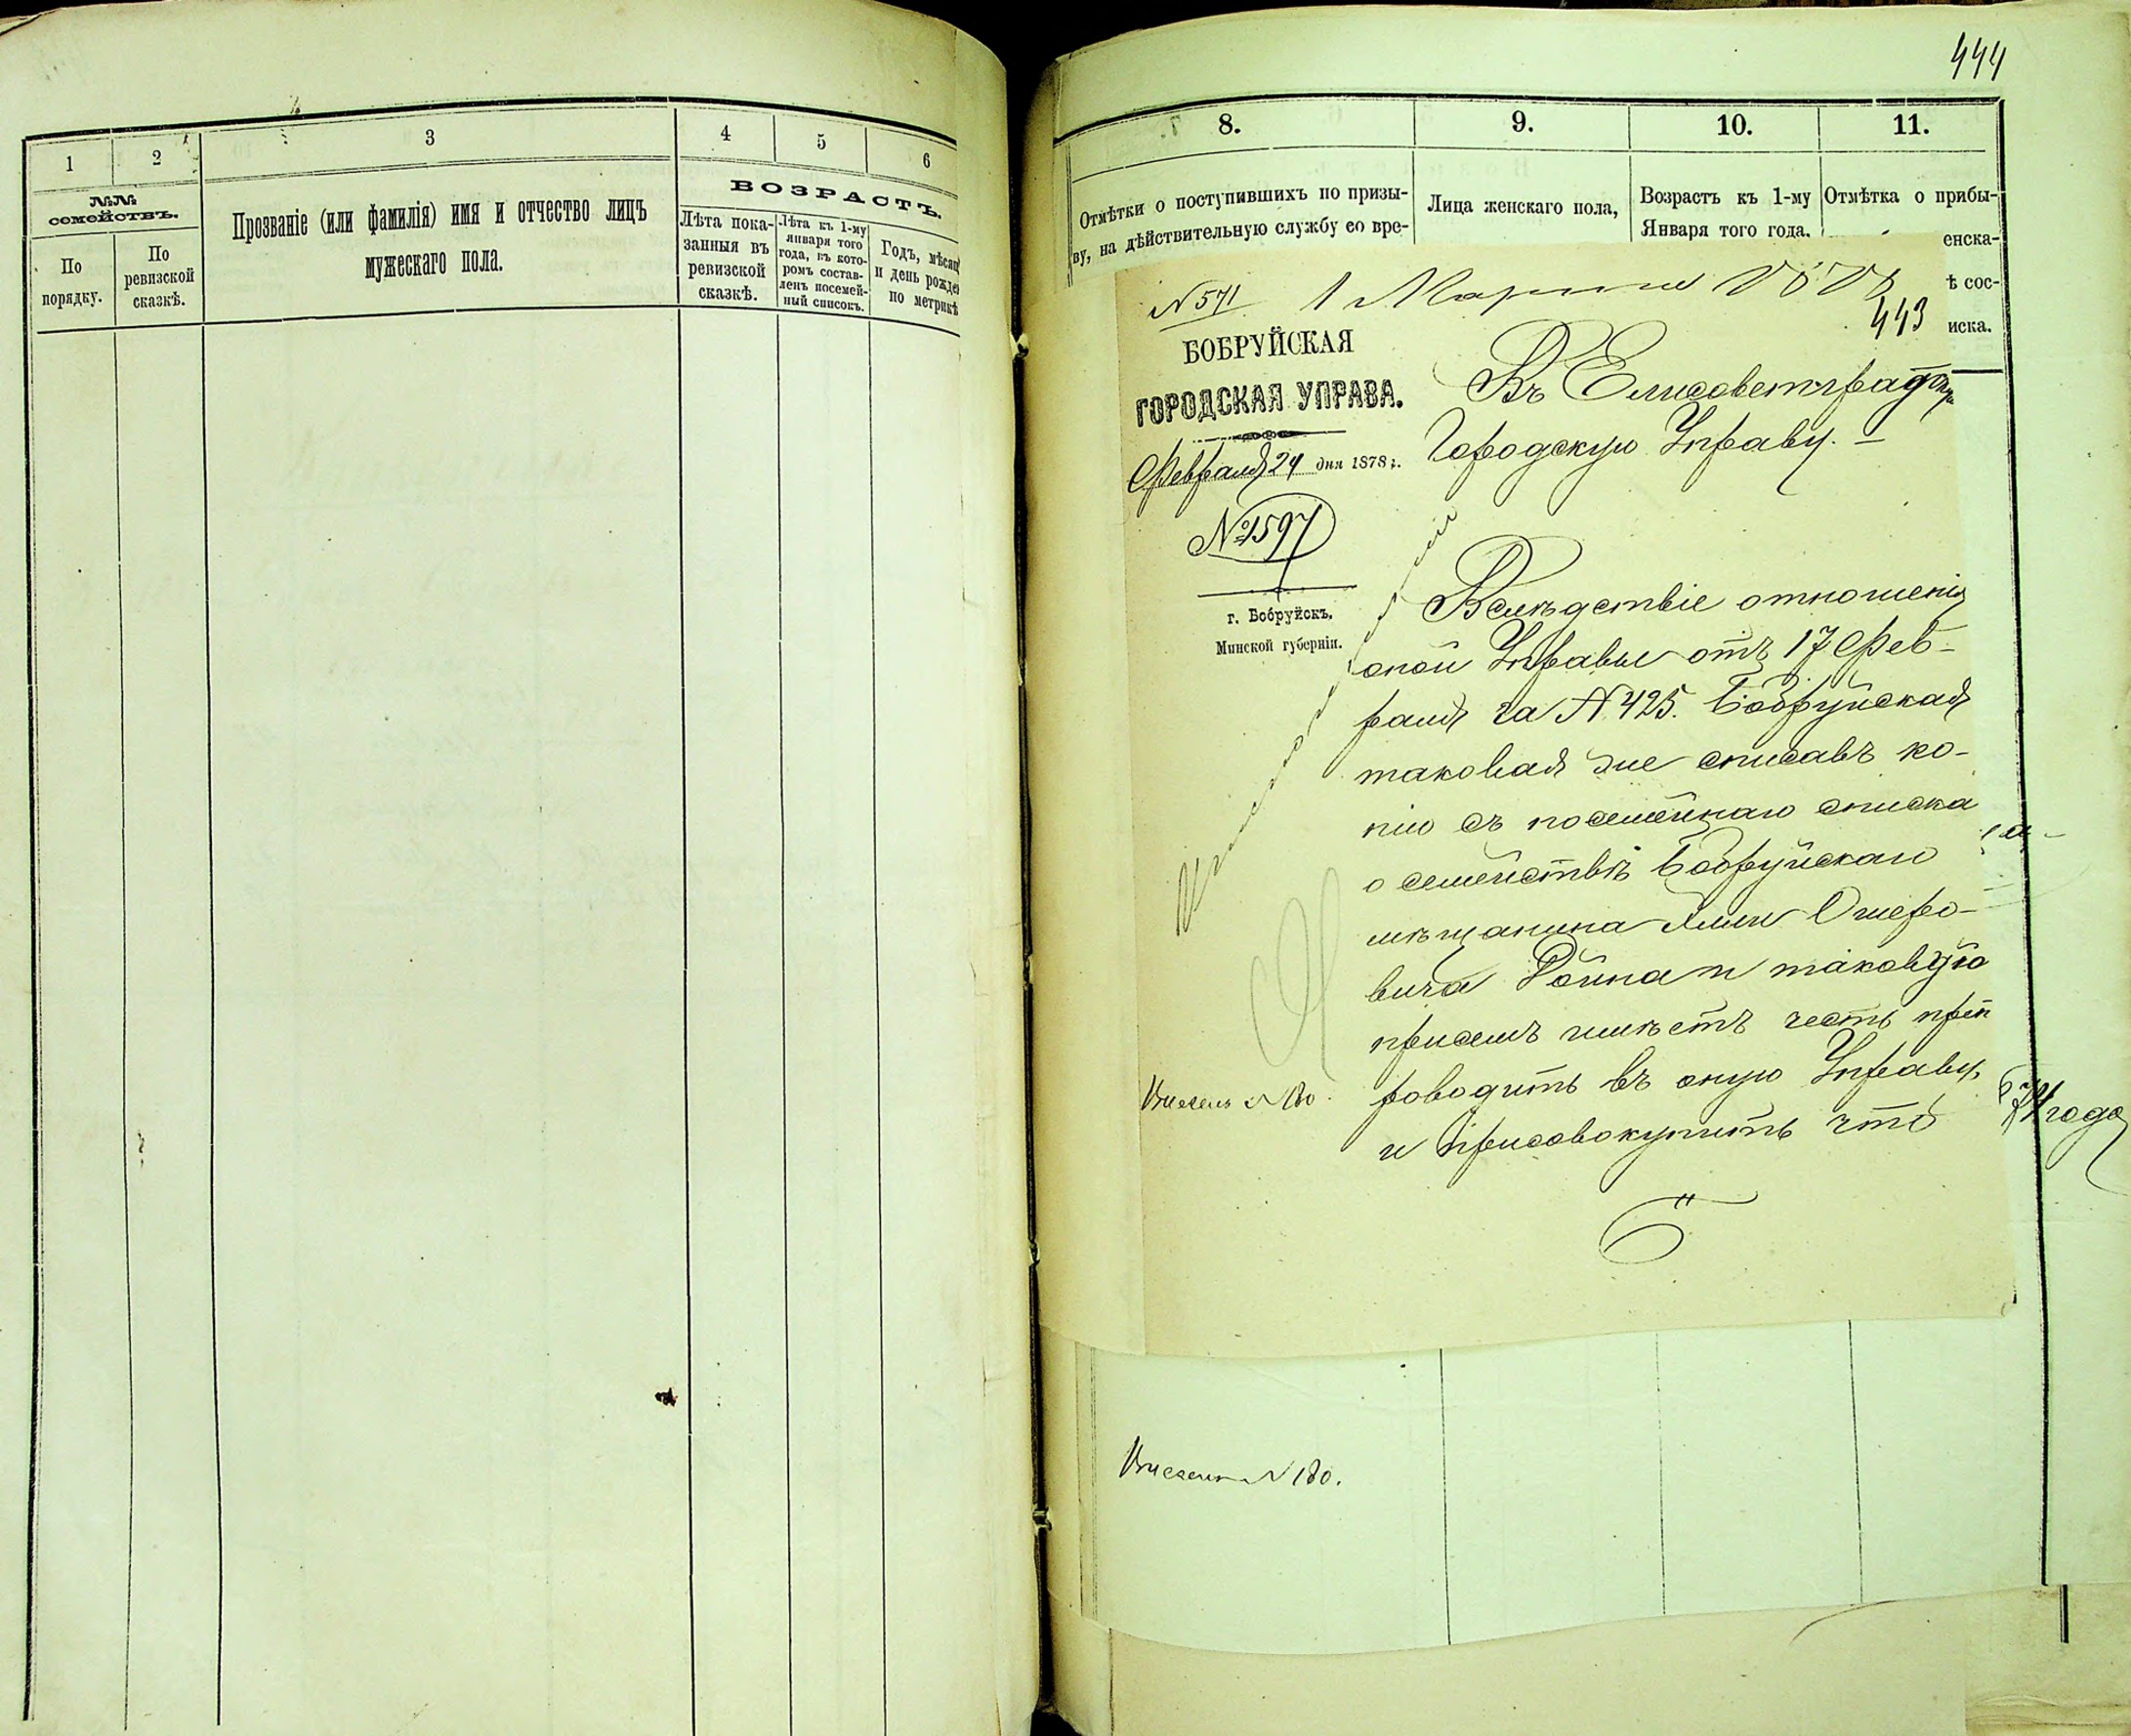 1
2
3
4
5
6
№№ семействъ.
По порядку.
По ревизской сказкѣ.
Прозваніе (или фамилія) имя и отчество лицъ
мужескаго пола.
ВОЗРАСТЪ.
Лѣта пока-
занныя въ
ревизской
сказкѣ.
Лѣта къ 1-му
января того
года, въ кото-
ромъ состав-
ленъ посемей-
ный списокъ.
Годъ, мѣсяц
и день рожде
по метрикѣ
444
8.
9.
10.
11.
Отмѣтки о поступившихъ по призы-
ву, на дѣйствительную службу со вре-
Лица женскаго пола,
Возрастъ къ 1-му
Января того года.
Отмѣтка о прибы-
енска-
ѣ сос-
иска.
№ 571 1 Марта 1878
443
БОБРУЙСКАЯ
ГОРОДСКАЯ УПРАВА.
Февраля 24 дня 1878 г.
№ 1597
г. Бобруйскъ,
Минской губерніи.
Въ Елисаветград
Городскую Управу. –
Вслѣдствіе отношенія
оной Управы отъ 17 Фев-
раля за № 425. Бобруйская
таковая же списавъ ко-
пію съ посемейнаго списка
о семействѣ Бобруйскаго
мѣщанина Ошеро-
вича и таковую
при семъ имѣетъ честь преп
роводить въ оную Управу,
и присовокупить что
Внесенъ № 180.
года
Внесенъ № 180.